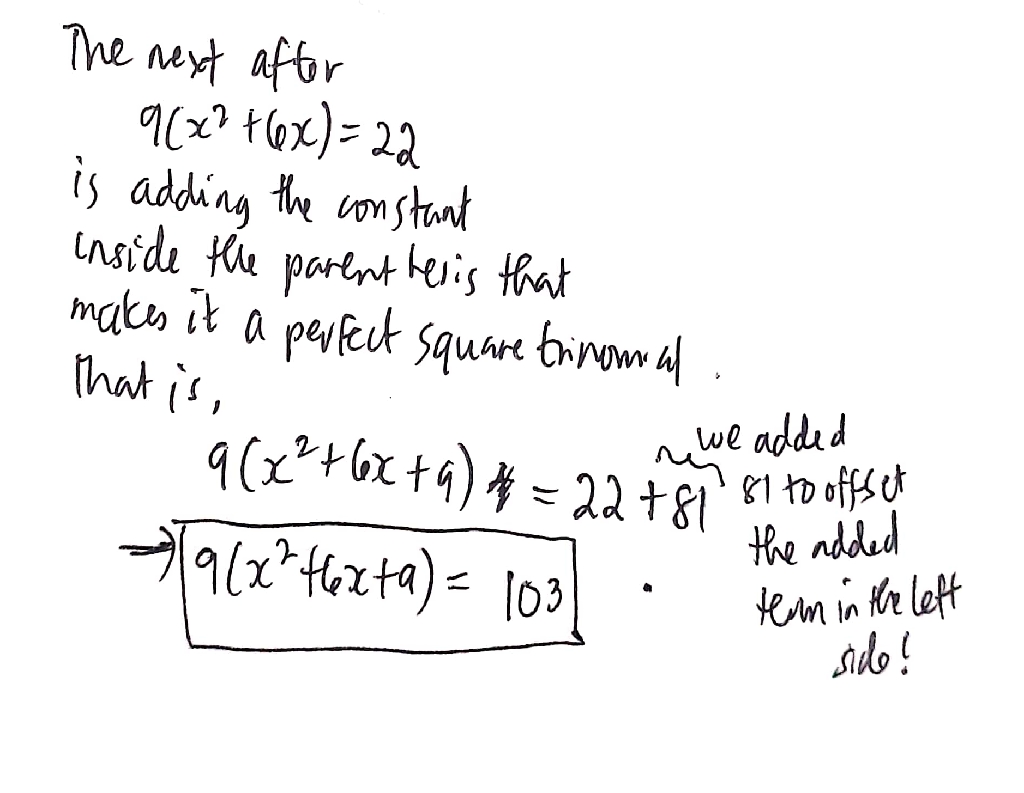 The next after
9(x² + 6x) = 22
is adding the constant
inside the parenthesis that
makes it a perfect square trinomial.
That is,
9(x² + 6x + 9) = 22 + 81
we added
81 to offset
the added
term in the left
side!
→ 9(x² + 6x + 9) = 103.